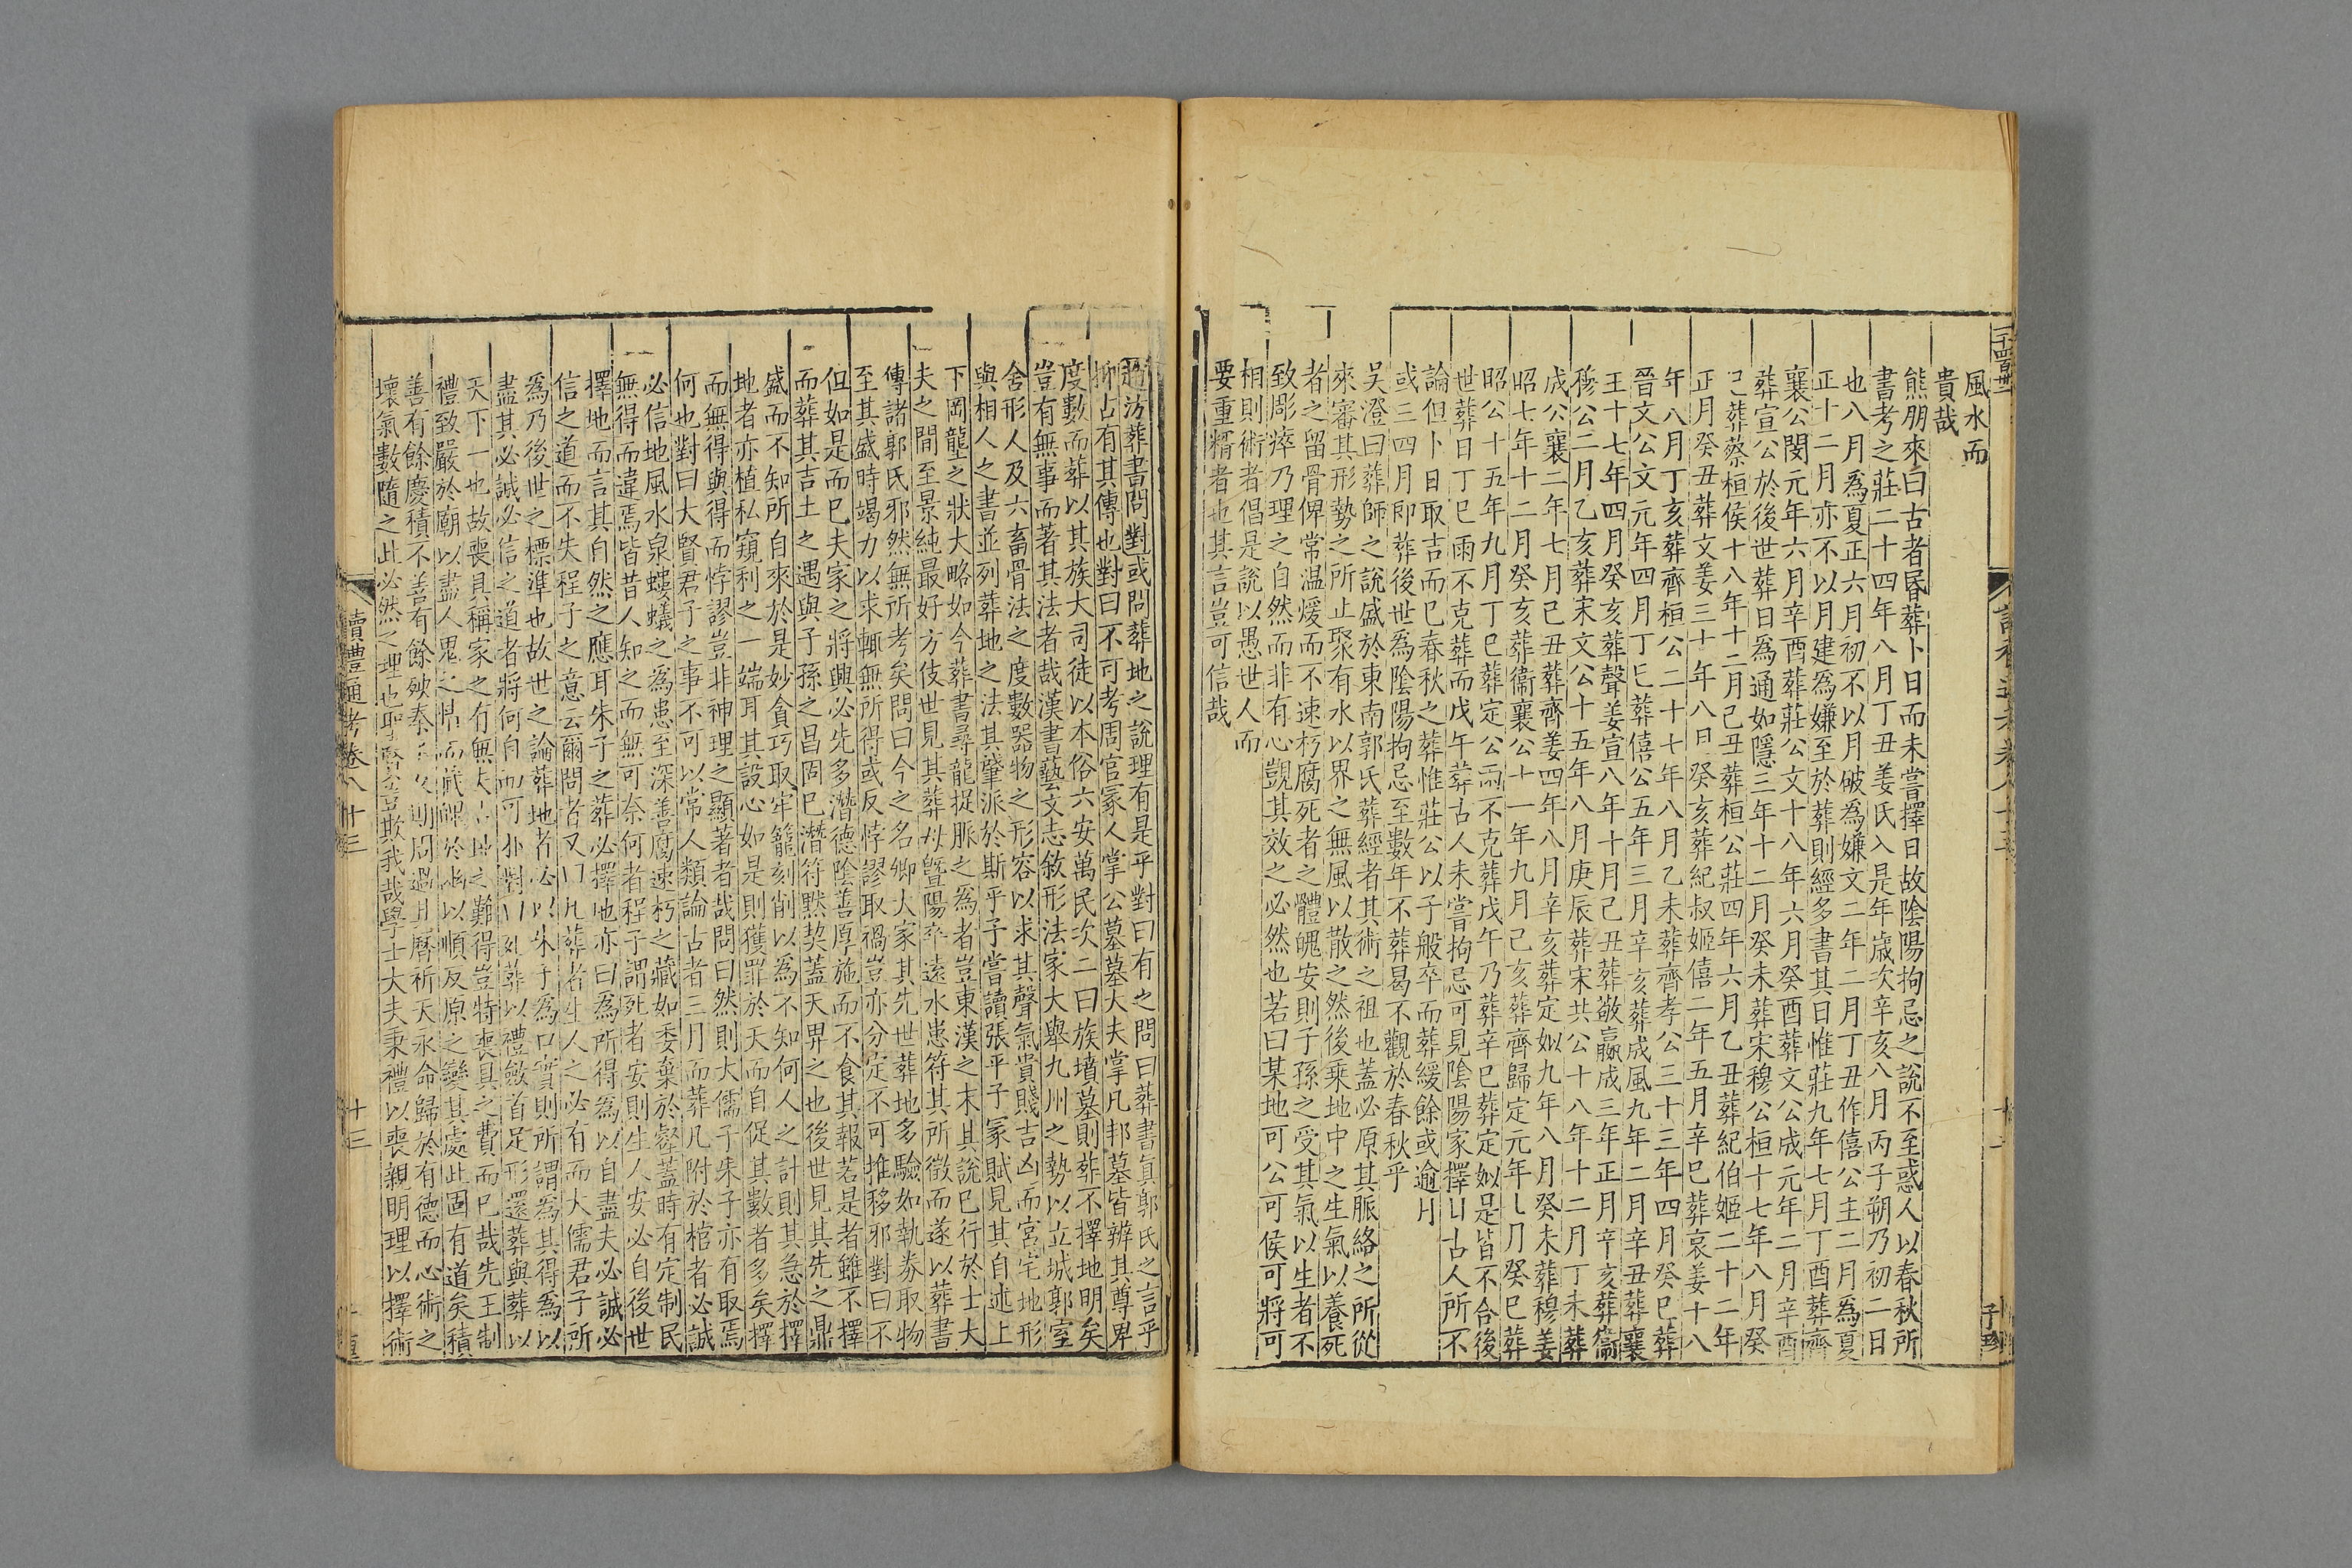 風水而
貴哉
熊朋來曰古者㫺葬卜日而未嘗擇日故陰陽拘忌之說不至惑人以春秋所
書考之莊二十四年八月丁丑姜氏入是年歲次辛亥八月丙子朔乃初二日
也八月為夏正六月初不以月破為嫌文二年二月丁丑作僖公主二月為夏
正十二月亦不以月建為嫌至於葬則經多書其日惟莊九年七月丁酉葬齊
襄公閔元年六月辛酉葬莊公文十八年六月癸酉葬文公成元年二月辛酉
葬宣公於後世葬日為通如隱三年十二月癸未葬宋穆公桓十七年八月癸
巳葬蔡桓侯十八年十二月己丑葬桓公莊四年六月乙丑葬紀伯姬二十二年
正月癸丑葬文姜三十年八月癸亥葬紀叔姬僖二年五月辛巳葬哀姜十八
年八月丁亥葬齊桓公二十七年八月乙未葬齊孝公三十三年四月癸巳葬
晉文公文元年四月丁巳葬僖公五年三月辛亥葬成風九年二月辛丑葬襄
王十七年四月癸亥葬聲姜宣八年十月己丑葬敬嬴成三年正月辛亥葬衞
穆公二月乙亥葬宋文公十五年八月庚辰葬宋共公十八年十二月丁未葬
成公襄二年七月己丑葬齊姜四年八月辛亥葬定姒九年八月癸未葬穆姜
昭七年十二月癸亥葬衞襄公十一年九月己亥葬齊歸定元年七月癸巳葬
昭公十五年九月丁巳葬定公雨不克葬戊午乃葬辛巳葬定姒是皆不合後
世葬日丁巳雨不克葬而戊午葬古人未嘗拘忌可見陰陽家擇日古人所不
論但卜日取吉而已春秋之葬惟莊公以子般卒而葬緩餘或逾月
或三四月即葬後世為陰陽拘忌至數年不葬曷不觀於春秋乎
吳澄曰葬師之說盛於東南郭氏葬經者其術之祖也蓋必原其脈絡之所從
來審其形勢之所止聚有水以界之無風以散之然後乘地中之生氣以養死
者之留骨俾常温煖而不速朽腐死者之體魄安則子孫之受其氣以生者不
致彫瘁乃理之自然而非有心覬其效之必然也若曰某地可公可侯可將可
相則術者倡是說以愚世人而
要重糈者也其言豈可信哉
趙汸葬書問對或問葬地之說理有是乎對曰有之問曰葬書眞郭氏之言乎
抑古有其傳也對曰不可考周官冢人掌公墓墓大夫掌凡邦墓皆辨其尊卑
度數而葬以其族大司徒以本俗六安萬民次二曰族墳墓則葬不擇地明矣
豈有無事而著其法者哉漢書藝文志敘形法家大舉九州之勢以立城郭室
舍形人及六畜骨法之度數器物之形容以求其聲氣貴賤吉凶而宮宅地形
與相人之書並列葬地之法其肇派於斯乎予嘗讀張平子冢賦見其自述上
下岡隴之狀大略如今葬書尋龍捉脈之為者豈東漢之末其說已行於士大
夫之間至景純最好方伎世見其葬母暨陽卒遠水患符其所徵而遂以葬書
傳諸郭氏邪然無所考矣問曰今之名卿大家其先世葬地多驗如執券取物
至其盛時竭力以求輒無所得或反悖謬取禍豈亦分定不可推移邪對曰不
但如是而已夫家之將興必先多潛德陰善厚施而不食其報若是者雖不擇
而葬其吉土之遇與子孫之昌固已潛符黙契蓋天畀之也後世見其先之鼎
盛而不知所自來於是妙貪巧取牢籠刻削以為不知何人之計則其急於擇
地者亦植私窺利之一端耳其設心如是則獲罪於天而自促其數者多矣擇
而無得與得而悖謬豈非神理之顯著者哉問曰然則大儒子朱子亦有取焉
何也對曰大賢君子之事不可以常人類論古者三月而葬凡附於棺者必誠
必信地風水泉螻蟻之為患至深善腐速朽之藏如委棄於壑蓋時有定制民
無得而違焉皆昔人知之而無可奈何者程子謂死者安則生人安必自後世
擇地而言其自然之應耳朱子之葬必擇地亦曰為所得為以自盡夫必誠必
信之道而不失程子之意云爾問者又曰凡葬者生人之必有而大儒君子所
為乃後世之標準也故世之論葬地者必以朱子為口實則所謂為其得為以
盡其必誠必信之道者將何自而可邪對曰死葬以禮斂首足形還葬與葬以
天下一也故喪具稱家之有無夫吉地之難得豈特喪具之費而已哉先王制
禮致嚴於廟以盡人鬼之情而藏魄於幽以順反原之變其處此固有道矣積
善有餘慶積不善有餘殃秦不及期周過其曆祈天永命歸於有德而心術之
壞氣數隨之此必然之理也聖賢豈欺我哉學士大夫秉禮以喪親明理以擇術
讀禮通考卷八十三
十三